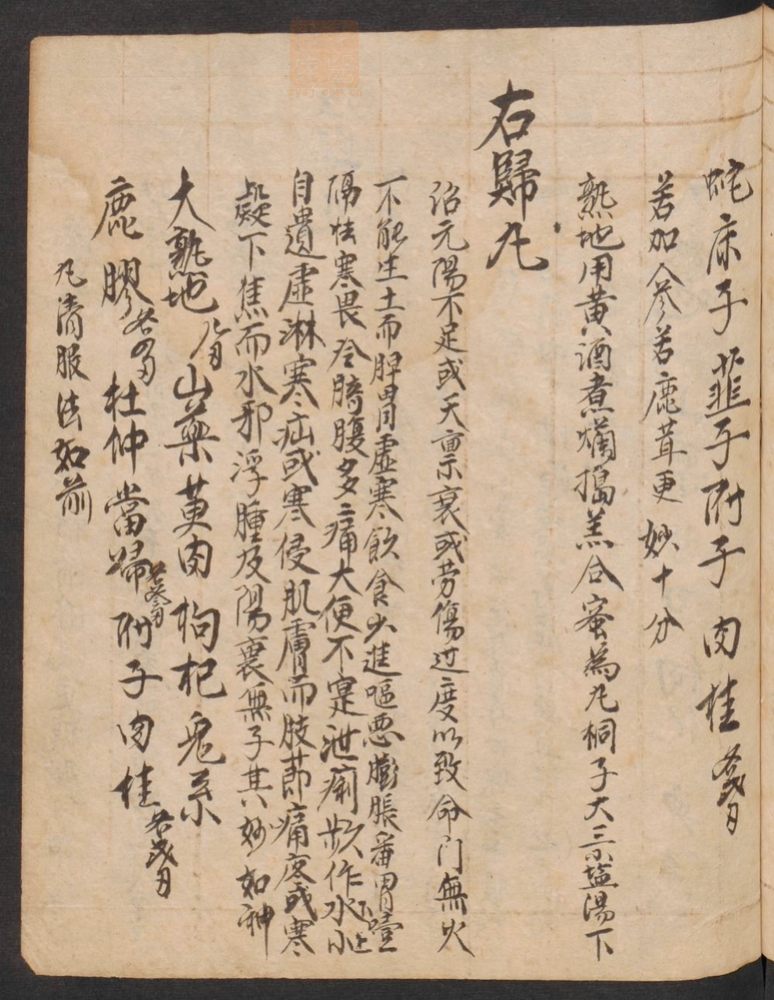 蛇床子 韮子 附子 肉桂 各弍月
若加人參若鹿茸更妙十分
熟地用黃酒煮爛搗羔合蜜為丸桐子大三ホ塩湯下
右歸丸
治元陽不足或天稟衰或劳傷过度以致命门無火
不能生土而脾胃虛寒飲食少進嘔悪膨脹番胃噎
隔怯寒畏冷臍腹多〻痛大便不寔泄痢頻作水小
自遺虛淋寒疝或寒侵肌膚而肢莭痛疼或寒
凝下焦而水邪浮腫及陽衰無子其妙如神
大熟地 山藥 萸肉 枸杞 兎糸
鹿膠 各四 杜仲 當歸 附子 肉桂 各弍月
丸清服法如前